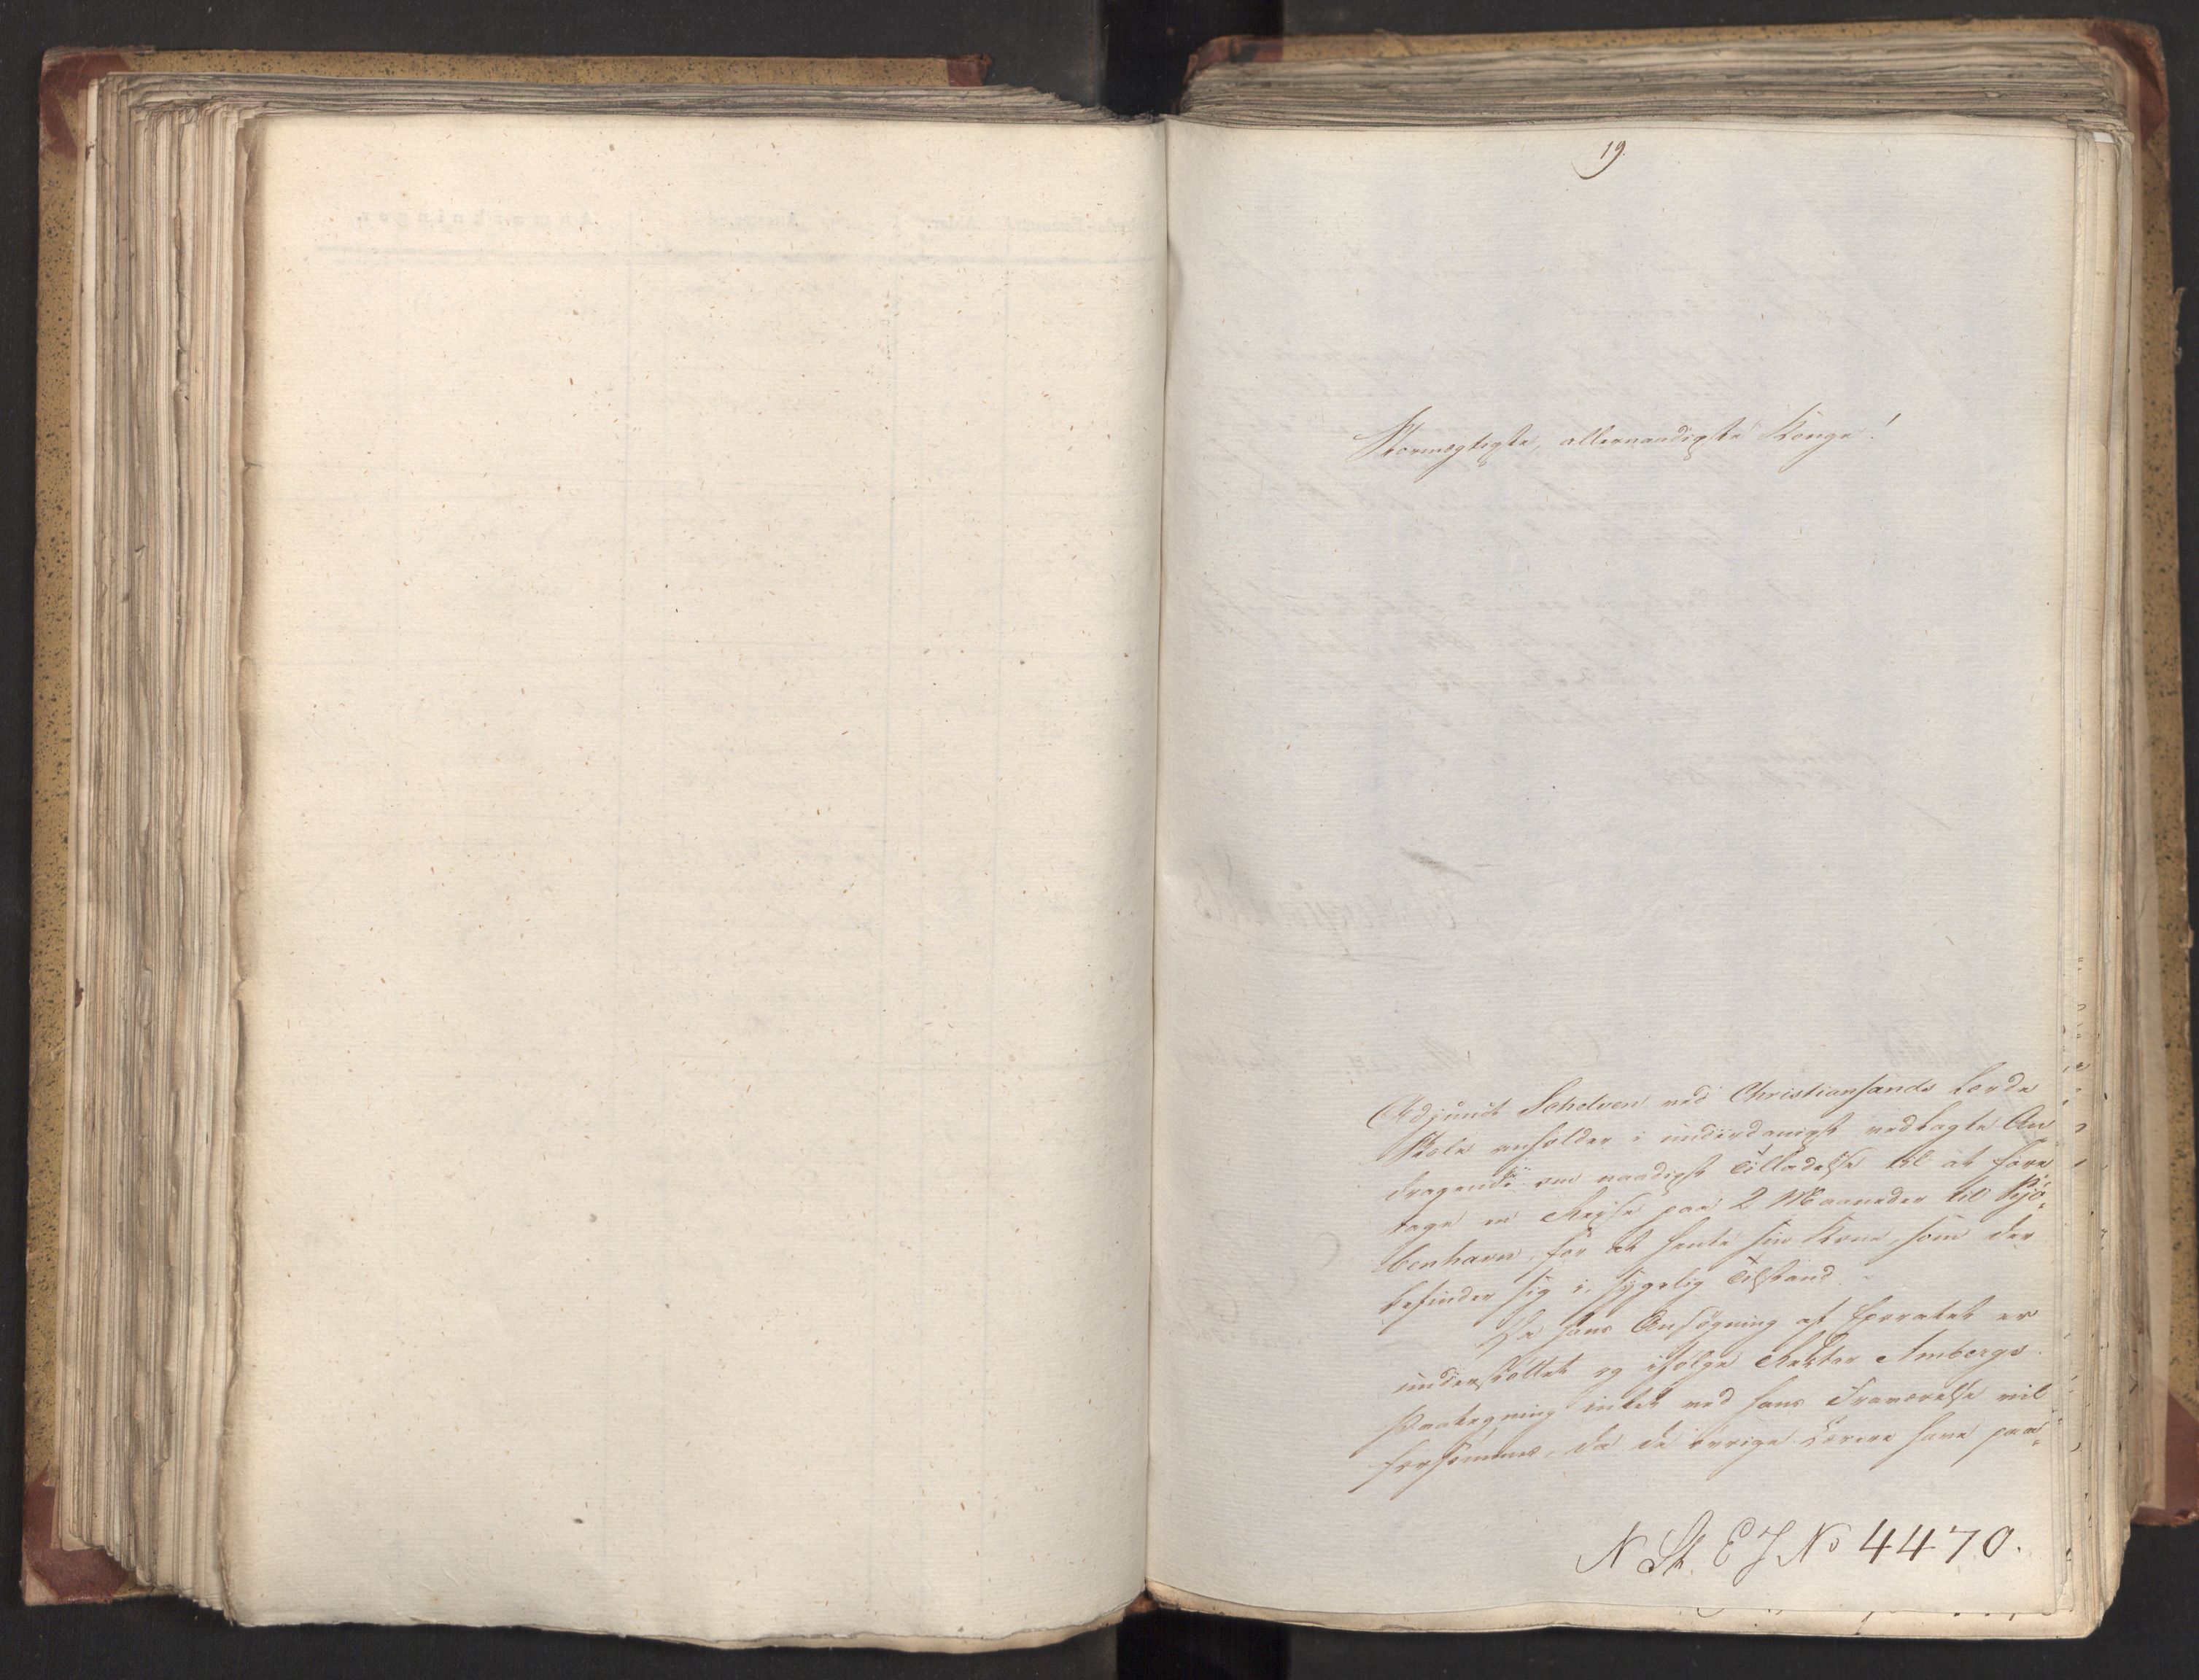 19.
Stormægtigste, allernaadigste Konge!
Adjunct Schelven ved Christiansands lærde
Skole anholder i underdanigst vedlagte An-
dragende om naadigst Tilladelse til at fore-
tage en Reise paa 2 Maaneder til Kjö-
benhavn, for at hente sin Kone, som der
befinder sig i sygelig Tilstand. -
Da hans Ansögning af Ephoratet er
understöttet og ifölge Rektor Ambergs
Paategning intet ved hans Fraværelse vil
forsömmes, da de övrige Lærere have paa-
N St. E J No 4470.